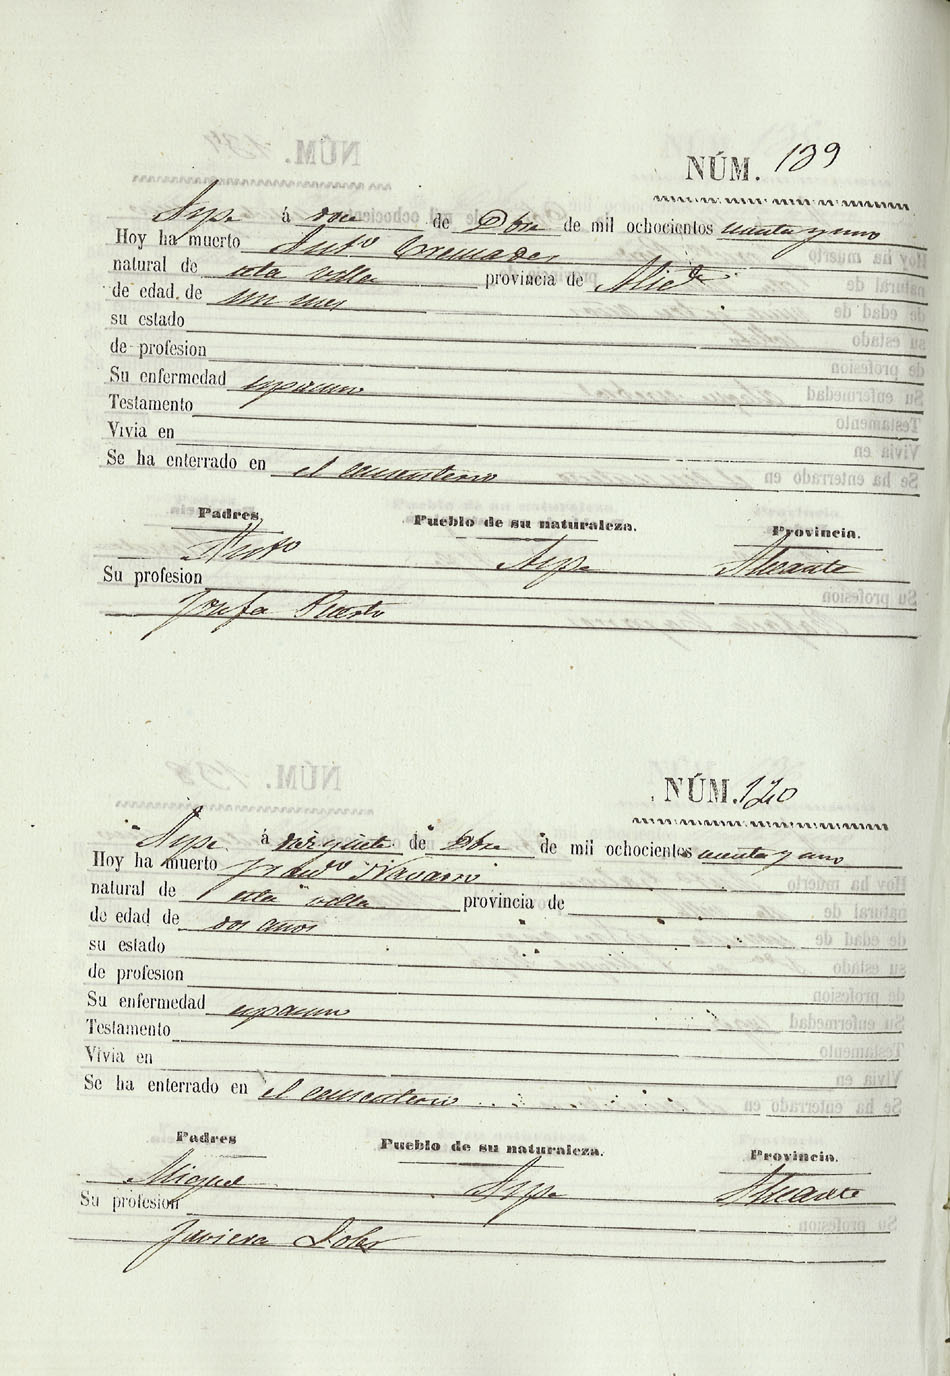 NÚM. 139
Aspe á doce de Dbre de mil ochocientos cuenta y uno
Hoy ha muerto Antº Cremades
natural de esta villa provincia de Alicte
de edad de un mes
su estado
de profesion
Su enfermedad espasmo
Testamento
Vivia en
Se ha enterrado en el cementerio
Padres. Pueblo de su naturaleza. Provincia.
Antº Aspe Alicante
Su profesion
Josefa
NÚM. 140
Aspe á diez y siete de Dbre de mil ochocientos cuenta y uno
Hoy ha muerto Navarro
natural de esta villa provincia de
de edad de dos años
su estado
de profesion
Su enfermedad espasmo
Testamento
Vivia en
Se ha enterrado en el cementerio
Padres Pueblo de su naturaleza. Provincia.
Miguel Aspe Alicante
Su profesion
Javiera Soler